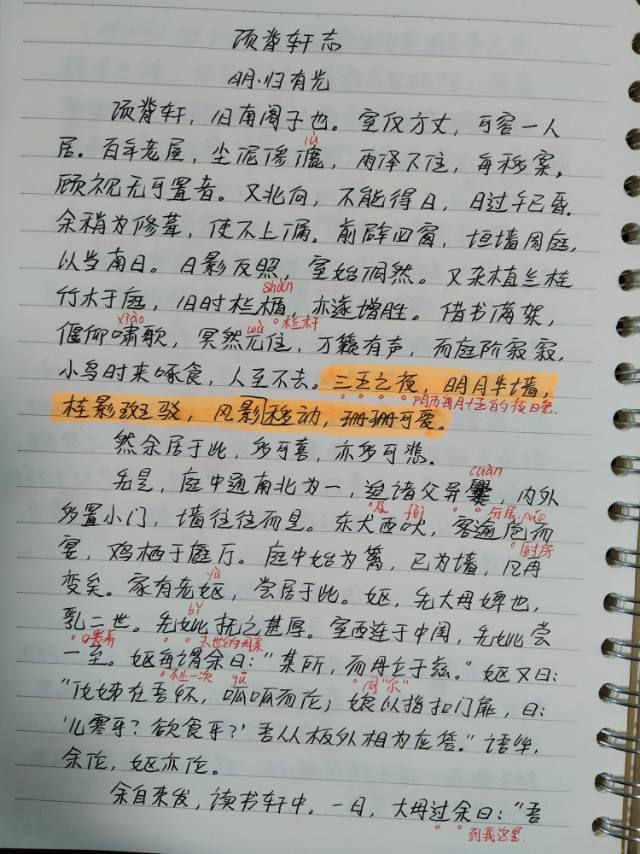 项脊轩志
明·归有光
项脊轩，旧南阁子也。室仅方丈，可容一人
居。百年老屋，尘泥渗漉，雨泽下注，每移案，
lù
顾视无可置者。又北向，不能得日，日过午已昏。
余稍为修葺，使不上漏。前辟四窗，垣墙周庭，
以当南日。日影反照，室始洞然。又杂植兰桂
竹木于庭，旧时栏楯，亦遂增胜。借书满架，
shǔn
栏杆
偃仰啸歌，冥然兀住，万籁有声，而庭阶寂寂，
xiào
wù
小鸟时来啄食，人至不去。三五之夜，明月半墙，
阴历每月十五的夜晚
桂影斑驳，风影移动，珊珊可爱。
然余居于此，多可喜，亦多可悲。
先是，庭中通南北为一，迨诸父异爨，内外
cuàn
及
分居
多置小门，墙往往而是。东犬西吠，客逾庖而
fèi
páo
厨房
宴，鸡栖于庭厅。庭中始为篱，已为墙，凡再
变矣。家有老妪，尝居于此。妪，先大母婢也，
yù
乳二世。先妣抚之甚厚。室西连于中闺，先妣尝
bǐ
去世的母亲
一至。妪每谓余曰：“某所，而母立于兹。”妪又曰：
不止一次
同“尔”
“汝姊在吾怀，呱呱而泣；娘以指扣门扉，曰：
gū
‘儿寒乎？欲食乎？’吾从板外相为应答。”语毕，
余泣，妪亦泣。
余自束发，读书轩中。一日，大母过余曰：“吾
到我这里